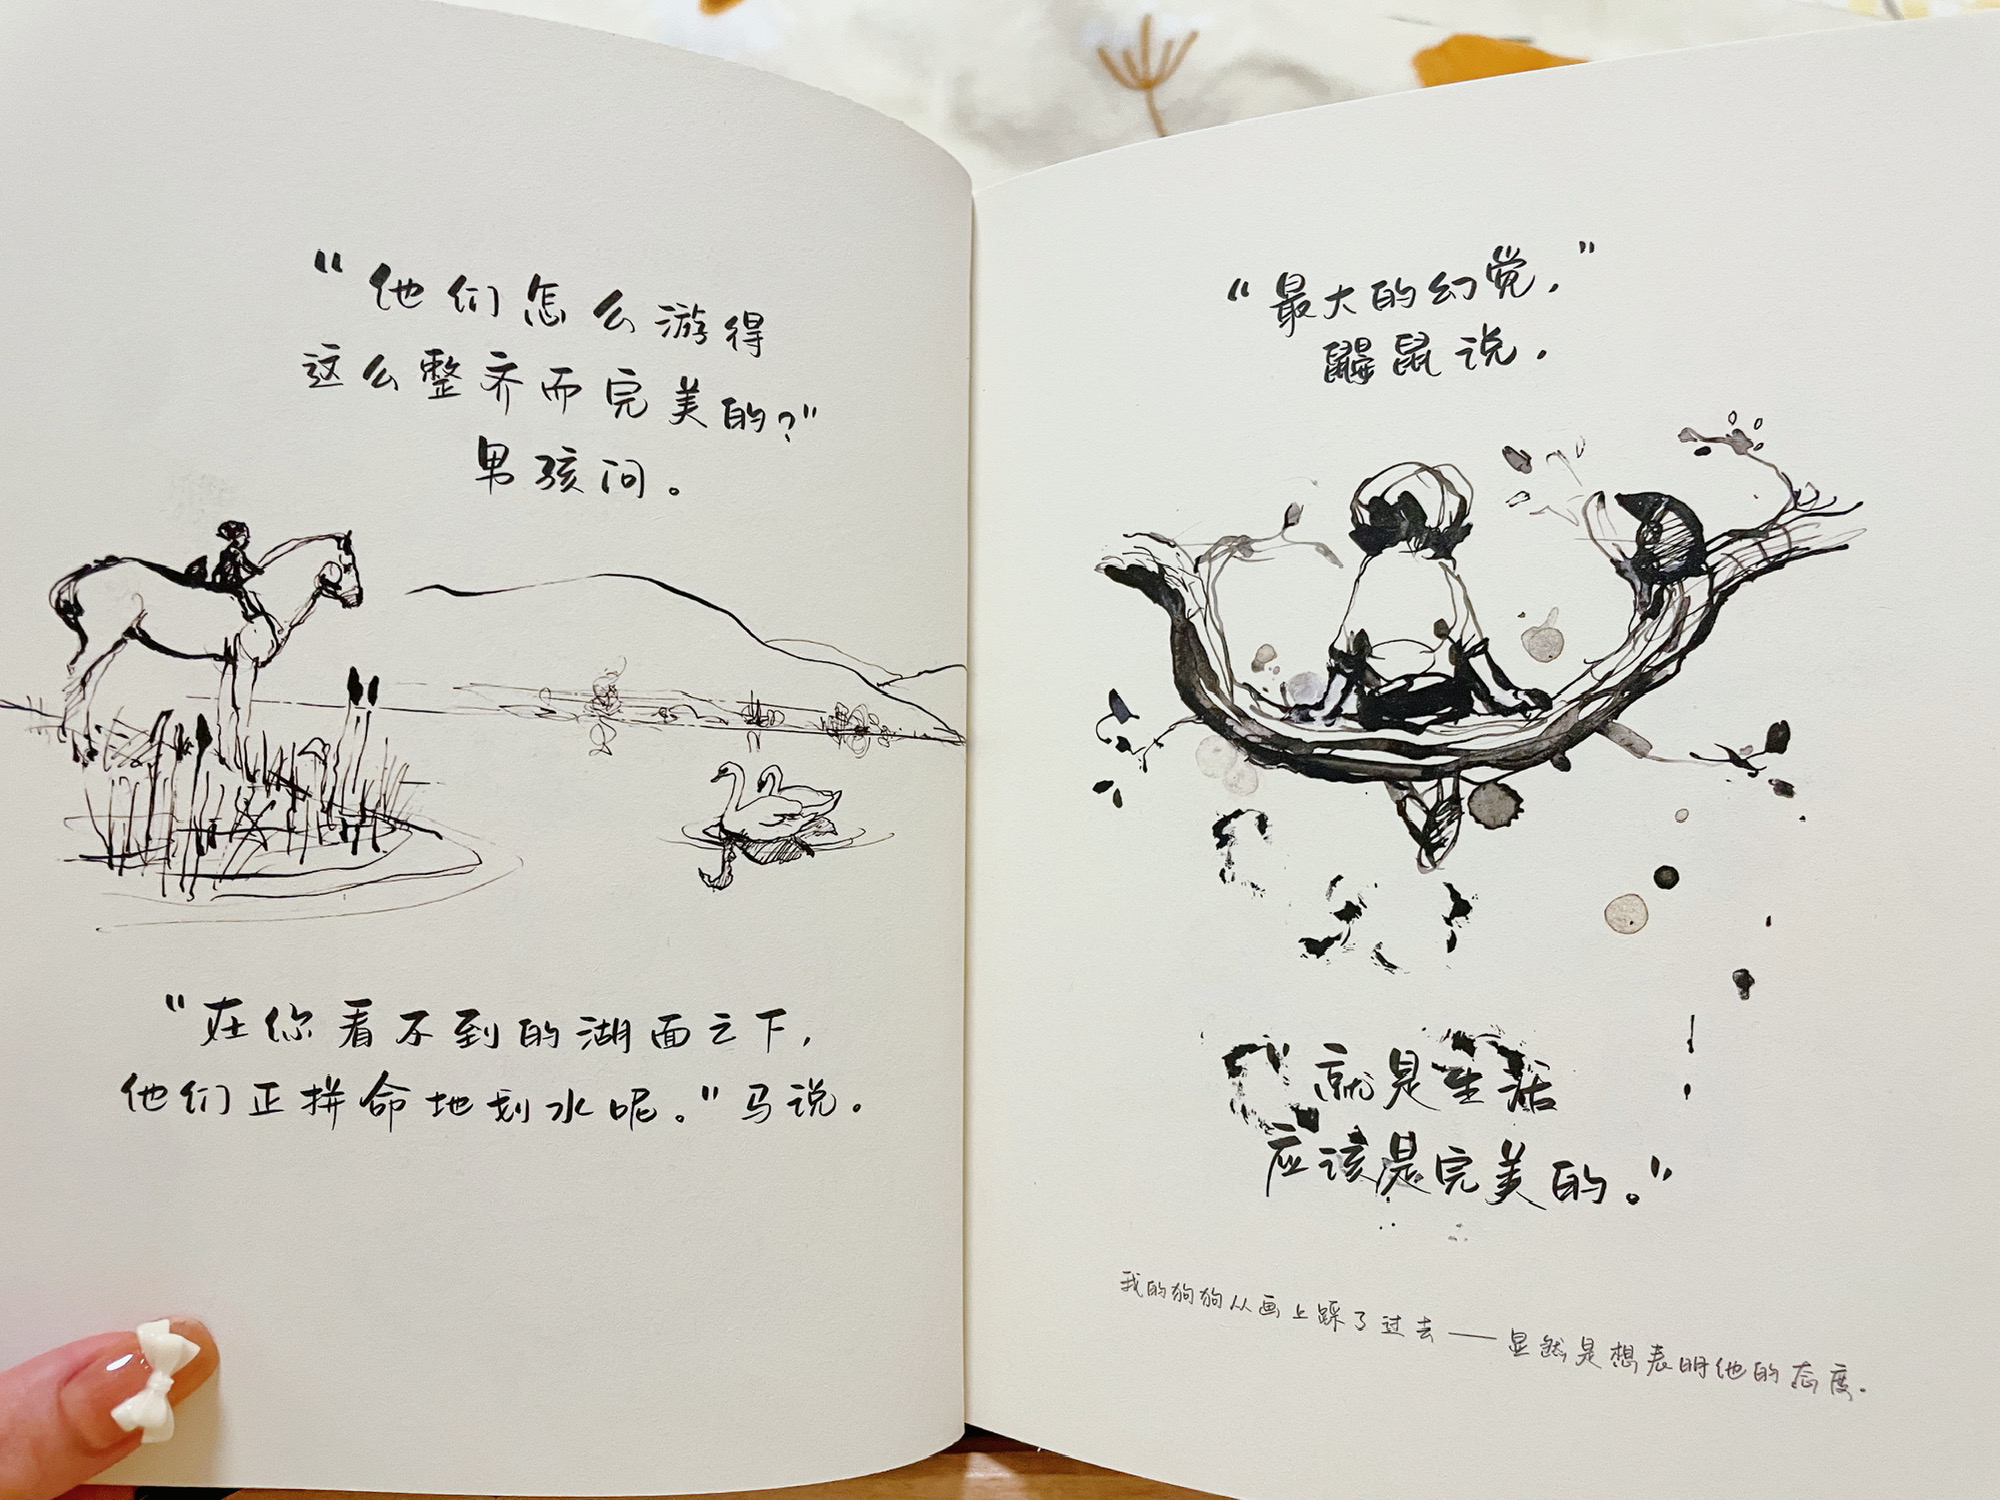 “他们怎么游得
这么整齐而完美的?”
男孩问。
“在你看不到的湖面之下，
他们正拼命地划水呢。”马说。
“最大的幻觉，”
鼹鼠说，
“就是生活
应该是完美的。”
我的狗狗从画上踩了过去——显然是想表明他的态度。